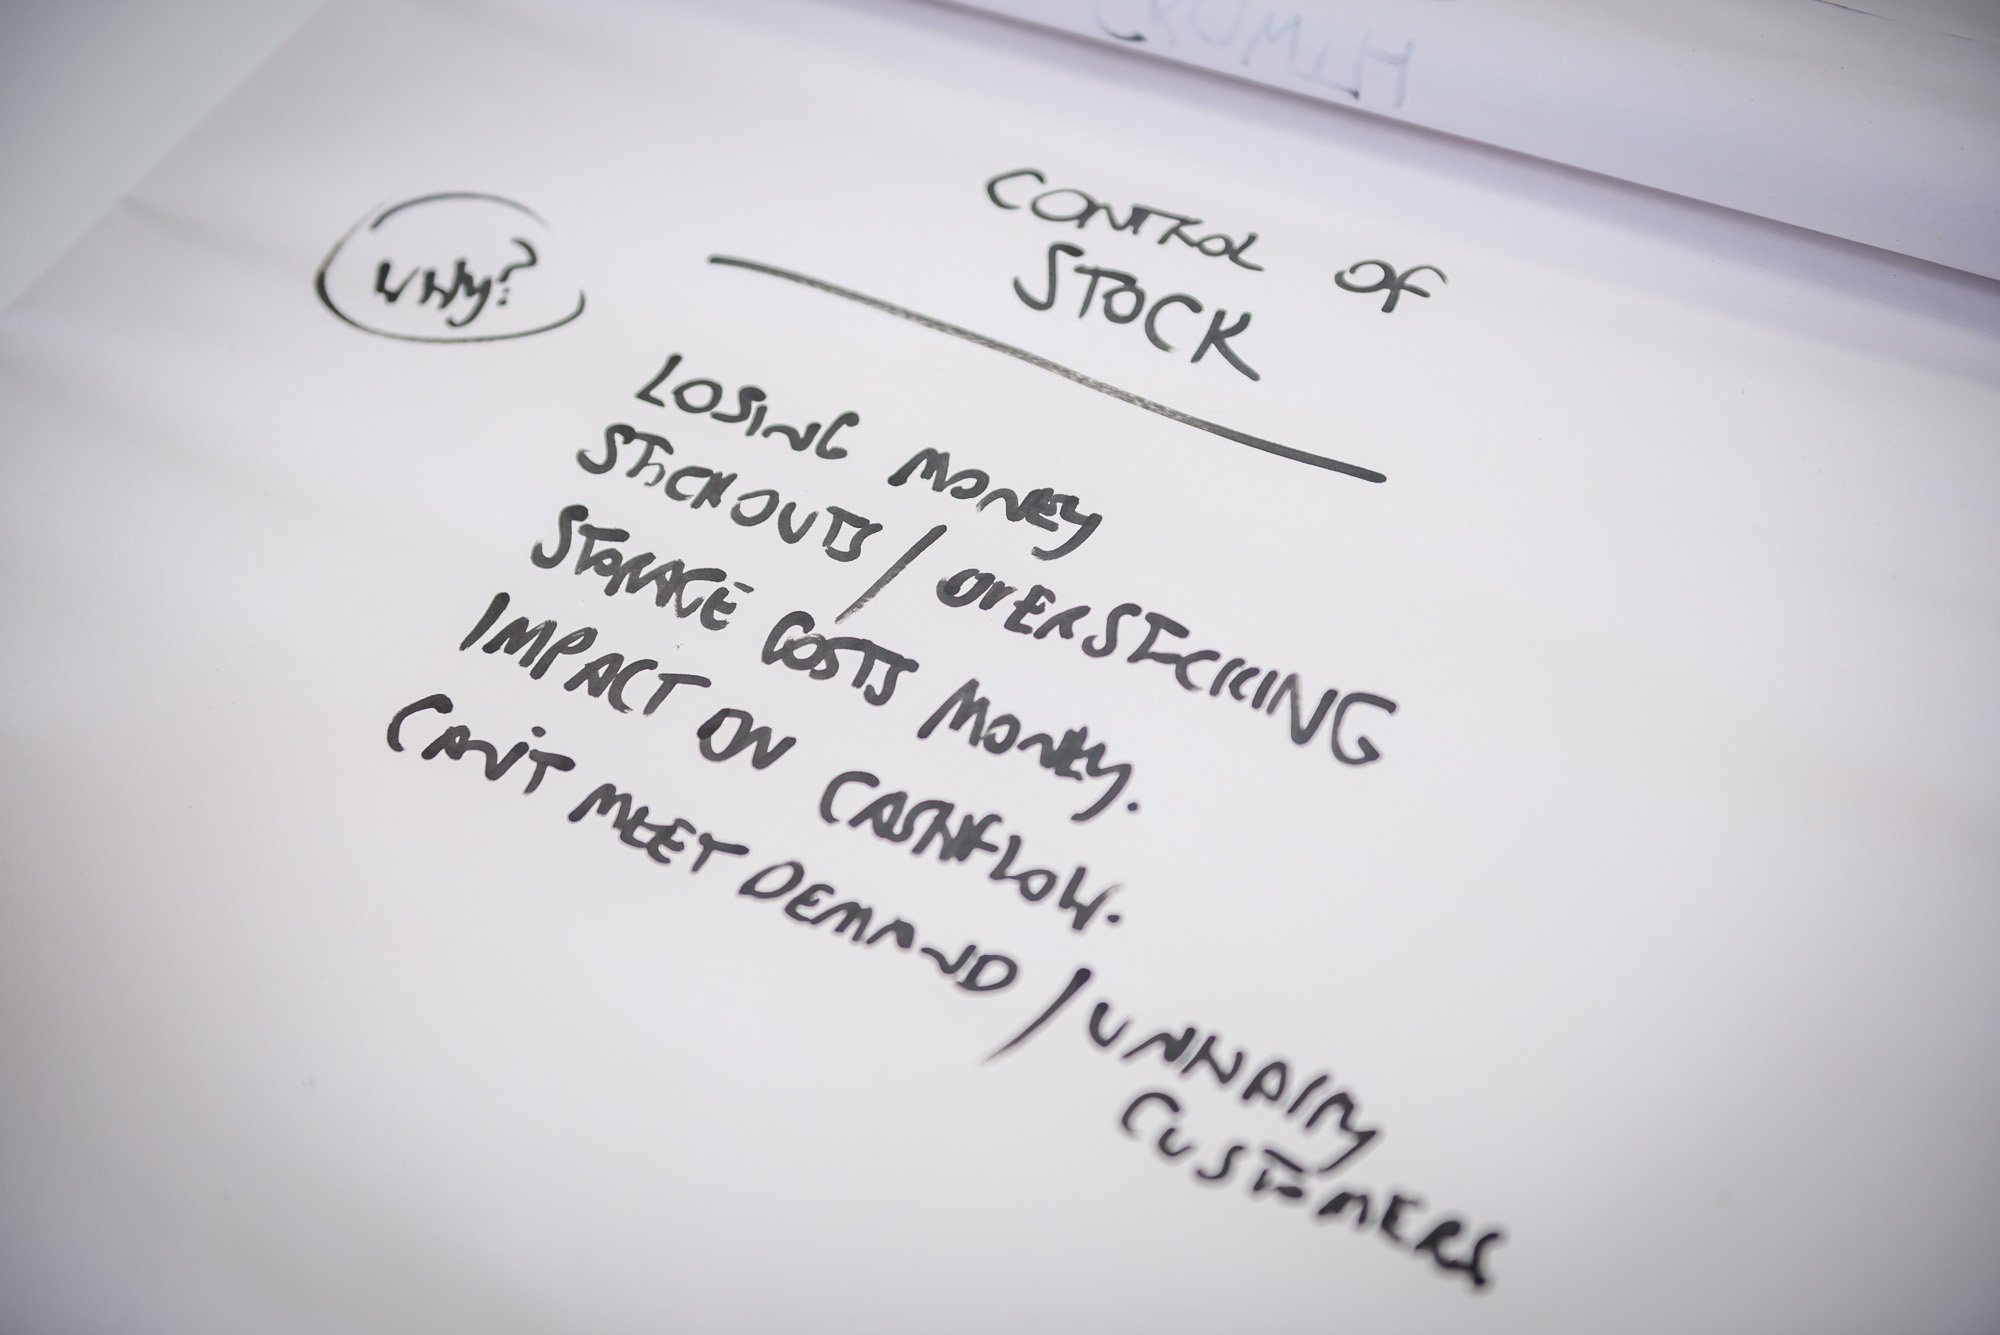 GROWTH
CONTROL OF
STOCK
WHY?
LOSING MONEY
STOCKOUTS / OVERSTOCKING
STORAGE COSTS MONEY.
IMPACT ON CASHFLOW.
CAN'T MEET DEMAND / UNHAPPY
CUSTOMERS